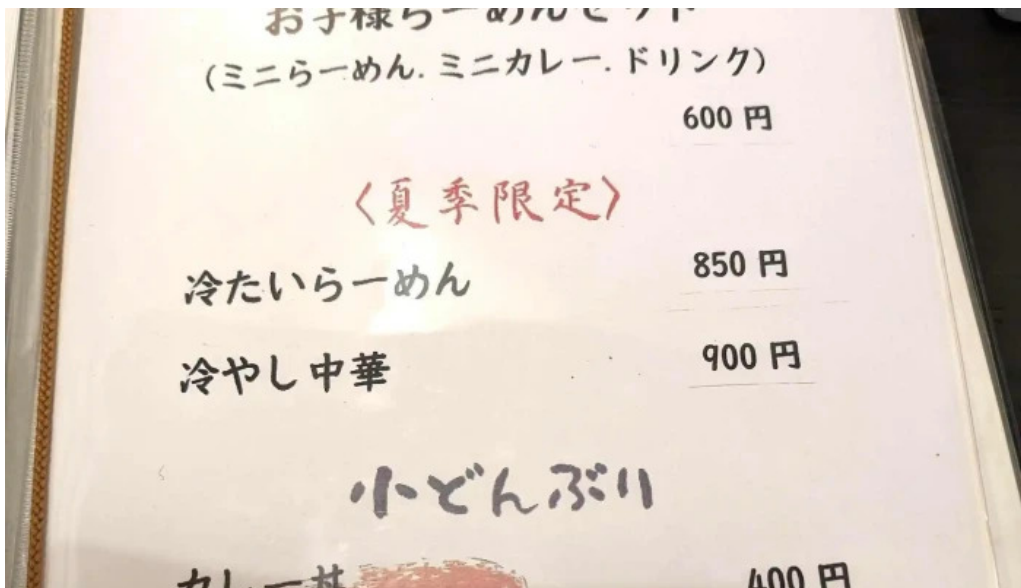 お子様らーめんセット
(ミニらーめん.ミニカレー.ドリンク)
600 円
〈夏季限定〉
冷たいらーめん 850 円
冷やし中華 900 円
小どんぶり
カレー丼 400 円